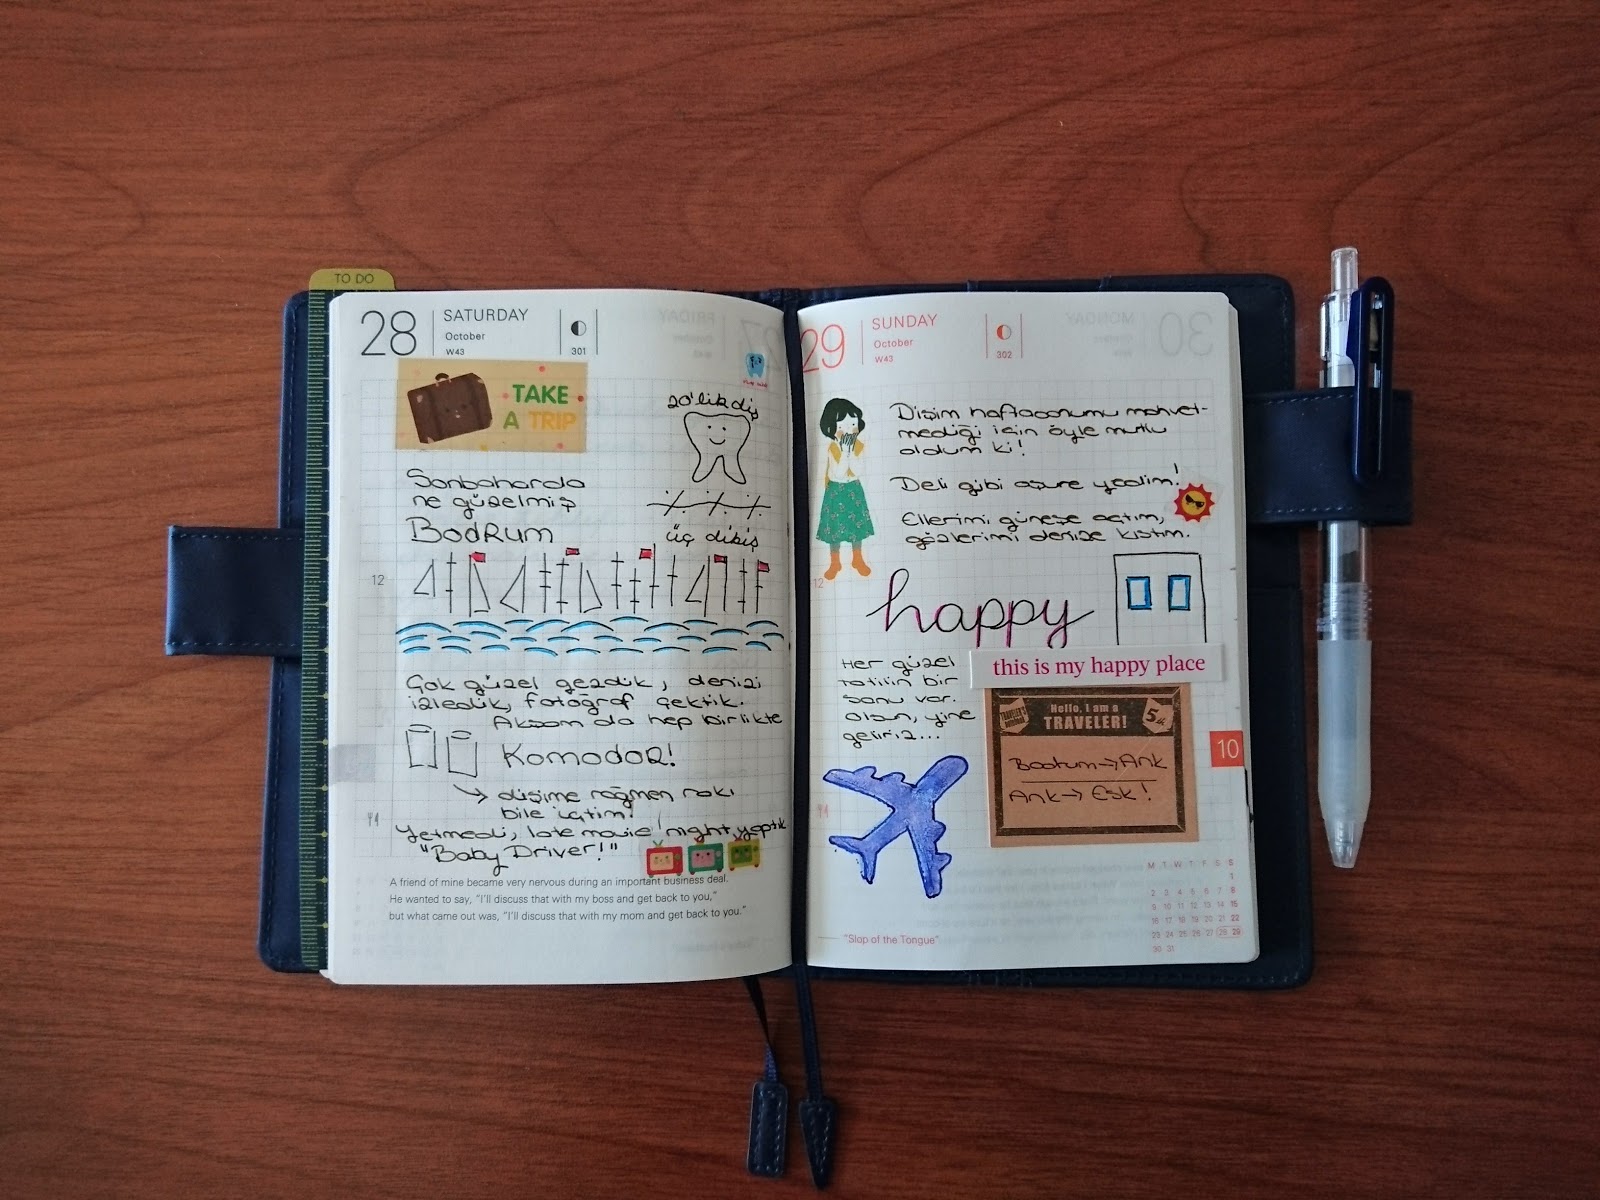 TO DO
28
SATURDAY
October
W43
301
TAKE
A TRIP
20'lik diş
Sonbaharda
ne güzelmiş
BODRUM
üç dikiş
12
Çok güzel gezdik, denizi
izledik, fotoğraf çektik.
Akşam da hep birlikte
KOMODOR!
→ dişime rağmen rakı
bile içtim!
Yetmedi, late movie night yaptık
"Baby Driver!"
A friend of mine became very nervous during an important business deal.
He wanted to say, "I'll discuss that with my boss and get back to you,"
but what came out was, "I'll discuss that with my mom and get back to you."
29
SUNDAY
October
W43
302
Dişim haftasonumu mahvet-
mediği için öyle mutlu
oldum ki!
Deli gibi aşure yedim!
Ellerimi güneşe açtım,
gözlerimi denize kıstım.
12
happy
this is my happy place
Her güzel
tatilin bir
sonu var.
Olsun, yine
geliriz...
Hello, i am a
TRAVELER!
Bodrum→Ank
Ank→Esk!
10
"Slop of the Tongue"
M T W T F S S
1
2 3 4 5 6 7 8
9 10 11 12 13 14 15
16 17 18 19 20 21 22
23 24 25 26 27 28 29
30 31